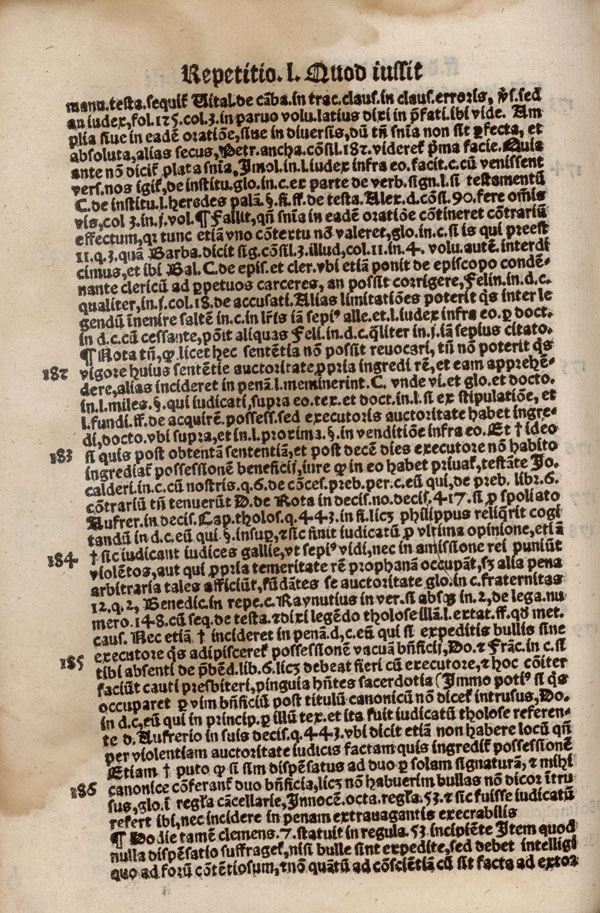 Repetitio. l. Quod iussit
manu.testa.sequiť Vital.de cāba.in trac.claus.in claus.erroris, v̄s.sed
an iudex,fol.125.col.3.in paruo volu.latius dixi in p̄fati.ibi vide. Am
plia siue in eadē oratiōe,siue in diuersis,dū tn̄ snīa non sit ꝑfecta, et
absoluta,alias secus,Petr.ancha.cōsil.182.videreť pͥma facie. Quia
ante nō diciť plata snīa, Imol.in.l.iudex infra eo.facit.c.cū venissent
vers.nos igiť,de institu.glo.in.c.ex parte de verb.sign.l.si testamentū
C.de institu.l.heredes palā.§.si.ff.de testa.Alex.d.cōsil.90.fere om̄is
vis,col 3.in.j.vol.¶ Fallit,qn̄ snīa in eadē oratiōe cōtineret cōtrariū
effectum,qꝛ tunc etiā vno cōtextu nō valeret,glo.in.c.si is qui preest
11.q.3.quā Barba.dicit sig.cōsil.3.illud,col.11.in.4. volu.autē.interdi
cimus,et ibi Bal.C.de epis.et cler.vbi etiā ponit de episcopo condē-
nante clericū ad ꝑpetuos carceres, an possit corrigere,Felin.in.d.c.
qualiter,in.j.col.18.de accusati.Alias limitatiōes poterit q̄s inter le
gendū īnenire saltē in.c.in lr̄is iā sepiꝰ alle.et.l.iudex infra eo.ꝑ doct.
in.d.c.cū cessante,pōit aliquas Feli.in d.c.q̄liter in.j.iā sepius citato.
¶ Nota tn̄,ꝙ licet hec sentētia nō possit reuocari, tn̄ nō poterit q̄s
182 vigore huius sentētie auctoritate,ꝓpria ingredi rē,et eam apprehē-
dere,alias incideret in penā.l.meminerint.C. vnde vi.et glo.et docto.
in.l.miles.§.qui iudicati,supra eo.tex.et doct.in.l.si ex stipulatiōe, et
l.fundi.ff.de acquirē.possess.sed executoris auctoritate habet ingre-
di,docto.vbi supra,et in.l.proxima.§.in venditiōe infra eo. Et † ideo
183 si quis post obtentā sententiā,et post decē dies executore nō habito
ingrediať possessionē beneficij,iure ꝙ in eo habet priuať,testāte Jo.
calderi.in.c.cū nostris.q.6.de cōces.preb.per.c.eū qui,de preb. libr.6.
cōtrariū tn̄ tenuerūt D.de Rota in decis.no.decis.417.si ꝑ spoliato
Aufrer.in decis.Cap.tholos.q.443.in fi.licꝫ philippus reliq̄rit cogi
tandū in d.c.eū qui §.insuꝑ,⁊ sic finit iudicatū ꝑ vltima opinione,etiā
184 † sic iudicant iudices gallie,vt sepiꝰ vidi,nec in amissione rei puniūt
violētos,aut qui ꝓpria temeritate rē prophanā occupāt,sꝫ alia pena
arbitraria tales afficiūt,fūdātes se auctoritate glo.in c.fraternitas
12.q.2, Benedic.in repe.c.Raynutius in ver.si absqꝫ in.2,de lega.nu
mero.148.cū seq.de testa.⁊dixi legēdo tholose illā.l.extat.ff.qd̄ met.
caus. Nec etiā † incideret in penā.d,c.eū qui si expeditis bullis sine
185 executore q̄s adipisceret possessionē vacuā bn̄ficij,Do.⁊ Frāc.in c.si
tibi absenti de p̄bēd.lib.6.licꝫ debeat fieri cū executore,⁊ hoc cōiter
faciūt cauti presbiteri,pinguia hn̄tes sacerdotia (Immo potiꝰ si q̄s
occuparet ꝑ vim bn̄ficiū post titulū canonicū nō diceť intrusus, Do.
in d.c,eū qui in princip.ꝑ illū tex.et ita fuit iudicatū tholose referen-
te d. Aufrerio in suis decis.q.443.vbi dicit etiā non habere locū qn̄
per violentiam auctoritate iudicis factam quis ingrediť possessionē
Etiam † puto ꝙ si sim dispēsatus ad duo ꝑ solam signaturā, ⁊ mihi
186 canonice cōferanť duo bn̄ficia,licꝫ nō habuerim bullas nō dicor ītru
sus,glo.ī regl̄a cācellarie,Innocē.octa.regl̄a.53.⁊ sic fuisse iudicatū
referť ibi,nec incidere in penam extrauagantis execrabilis
¶ Hodie tamē clemens.7.statuit in regula.53.incipiēte Item quod
nulla dispēsatio suffrageť,nisi bulle sint expedite,sed debet intelligi
quo ad forū cōtētiosum,⁊nō quātū ad cōsciētiā cū sit facta ad extor